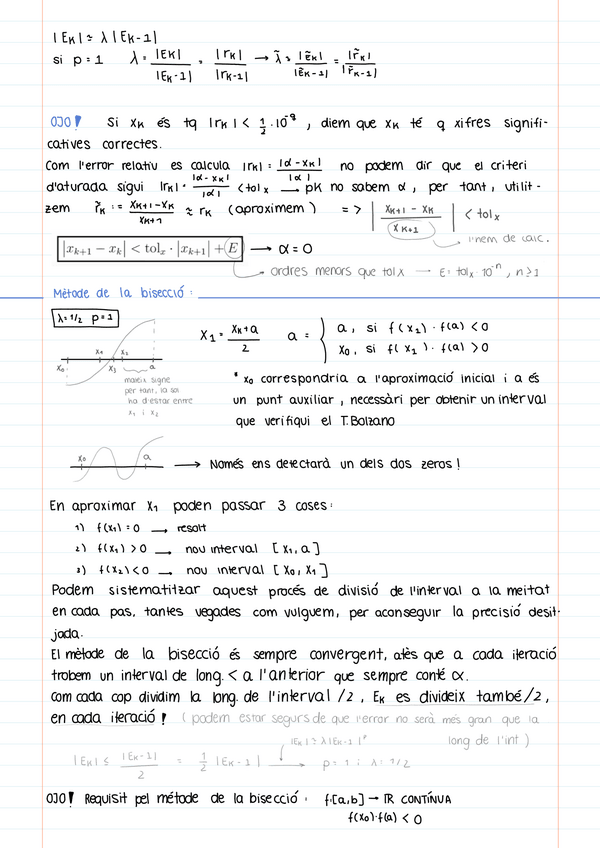 |Eₖ| ≃ λ |Eₖ₋₁|
si p = 1   λ ≃ |Eₖ| / |Eₖ₋₁| = |rₖ| / |rₖ₋₁| → λ̃ ≃ |ẽₖ| / |ẽₖ₋₁| = |r̃ₖ| / |r̃ₖ₋₁|
OJO! Si xₖ és tq |rₖ| < 1/2 · 10⁻q , diem que xₖ té q xifres signifi-
catives correctes.
Com l'error relatiu es calcula |rₖ| = |α - xₖ| / |α| no podem dir que el criteri
d'aturada sigui |rₖ| = |α - xₖ| / |α| < tolₓ → pk no sabem α, per tant, utilit-
zem r̃ₖ := (xₖ₊₁ - xₖ) / xₖ₊₁ ≈ rₖ (aproximem) => | (xₖ₊₁ - xₖ) / xₖ₊₁ | < tolₓ
l'hem de calc.
|xₖ₊₁ − xₖ| < tolₓ · |xₖ₊₁| + E → α = 0
ordres menors que tolx → E = tolₓ · 10⁻ⁿ , n ≥ 1
Mètode de la bisecció :
λ = 1/2 p = 1
x₁ = (xₖ + a) / 2   a = { a, si f(x₁) · f(a) < 0
x₀, si f(x₁) · f(a) > 0
x₀ x₁ x₂ x₃ a
mateix signe
per tant, la sol
ha d'estar entre
x₁ i x₂
* x₀ correspondria a l'aproximació inicial i a és
un punt auxiliar, necessàri per obtenir un interval
que verifiqui el T.Bolzano
x₀ a → Només ens detectarà un dels dos zeros!
En aproximar x₁ poden passar 3 coses:
1) f(x₁) = 0 → resolt
2) f(x₁) > 0 → nou interval [x₁, a]
3) f(x₂) < 0 → nou interval [x₀, x₁]
Podem sistematitzar aquest procés de divisió de l'interval a la meitat
en cada pas, tantes vegades com vulguem, per aconseguir la precisió desit-
jada.
El mètode de la bisecció és sempre convergent, atès que a cada iteració
trobem un interval de long. < a l'anterior que sempre conté α.
Com cada cop dividim la long. de l'interval /2, Eₖ es divideix també /2,
en cada iteració! (podem estar segurs de que l'error no serà més gran que la
long de l'int)
|Eₖ| ≃ λ|Eₖ₋₁|ᵖ
|Eₖ| ≤ |Eₖ₋₁| / 2 = 1/2 |Eₖ₋₁| → p = 1 i λ = 1/2
OJO! Requisit pel métode de la bisecció : f:[a,b] → ℝ CONTÍNUA
f(x₀)·f(a) < 0